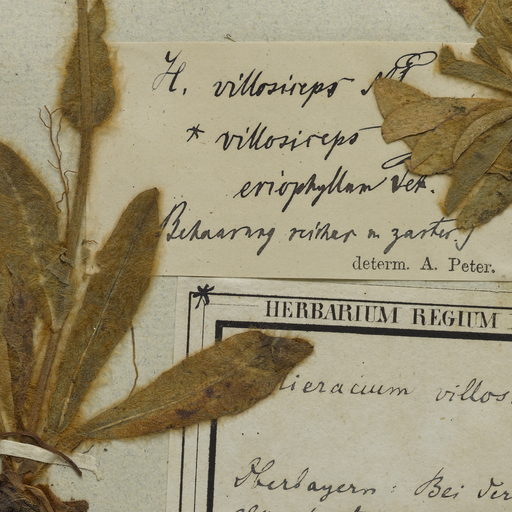 H. villosiceps NP
* villosiceps
eriophyllum Vuk.
Behaarung reicher u zarter
determ. A. Peter.
HERBARIUM REGIUM
Hieracium villos
Oberbayern: Bei der